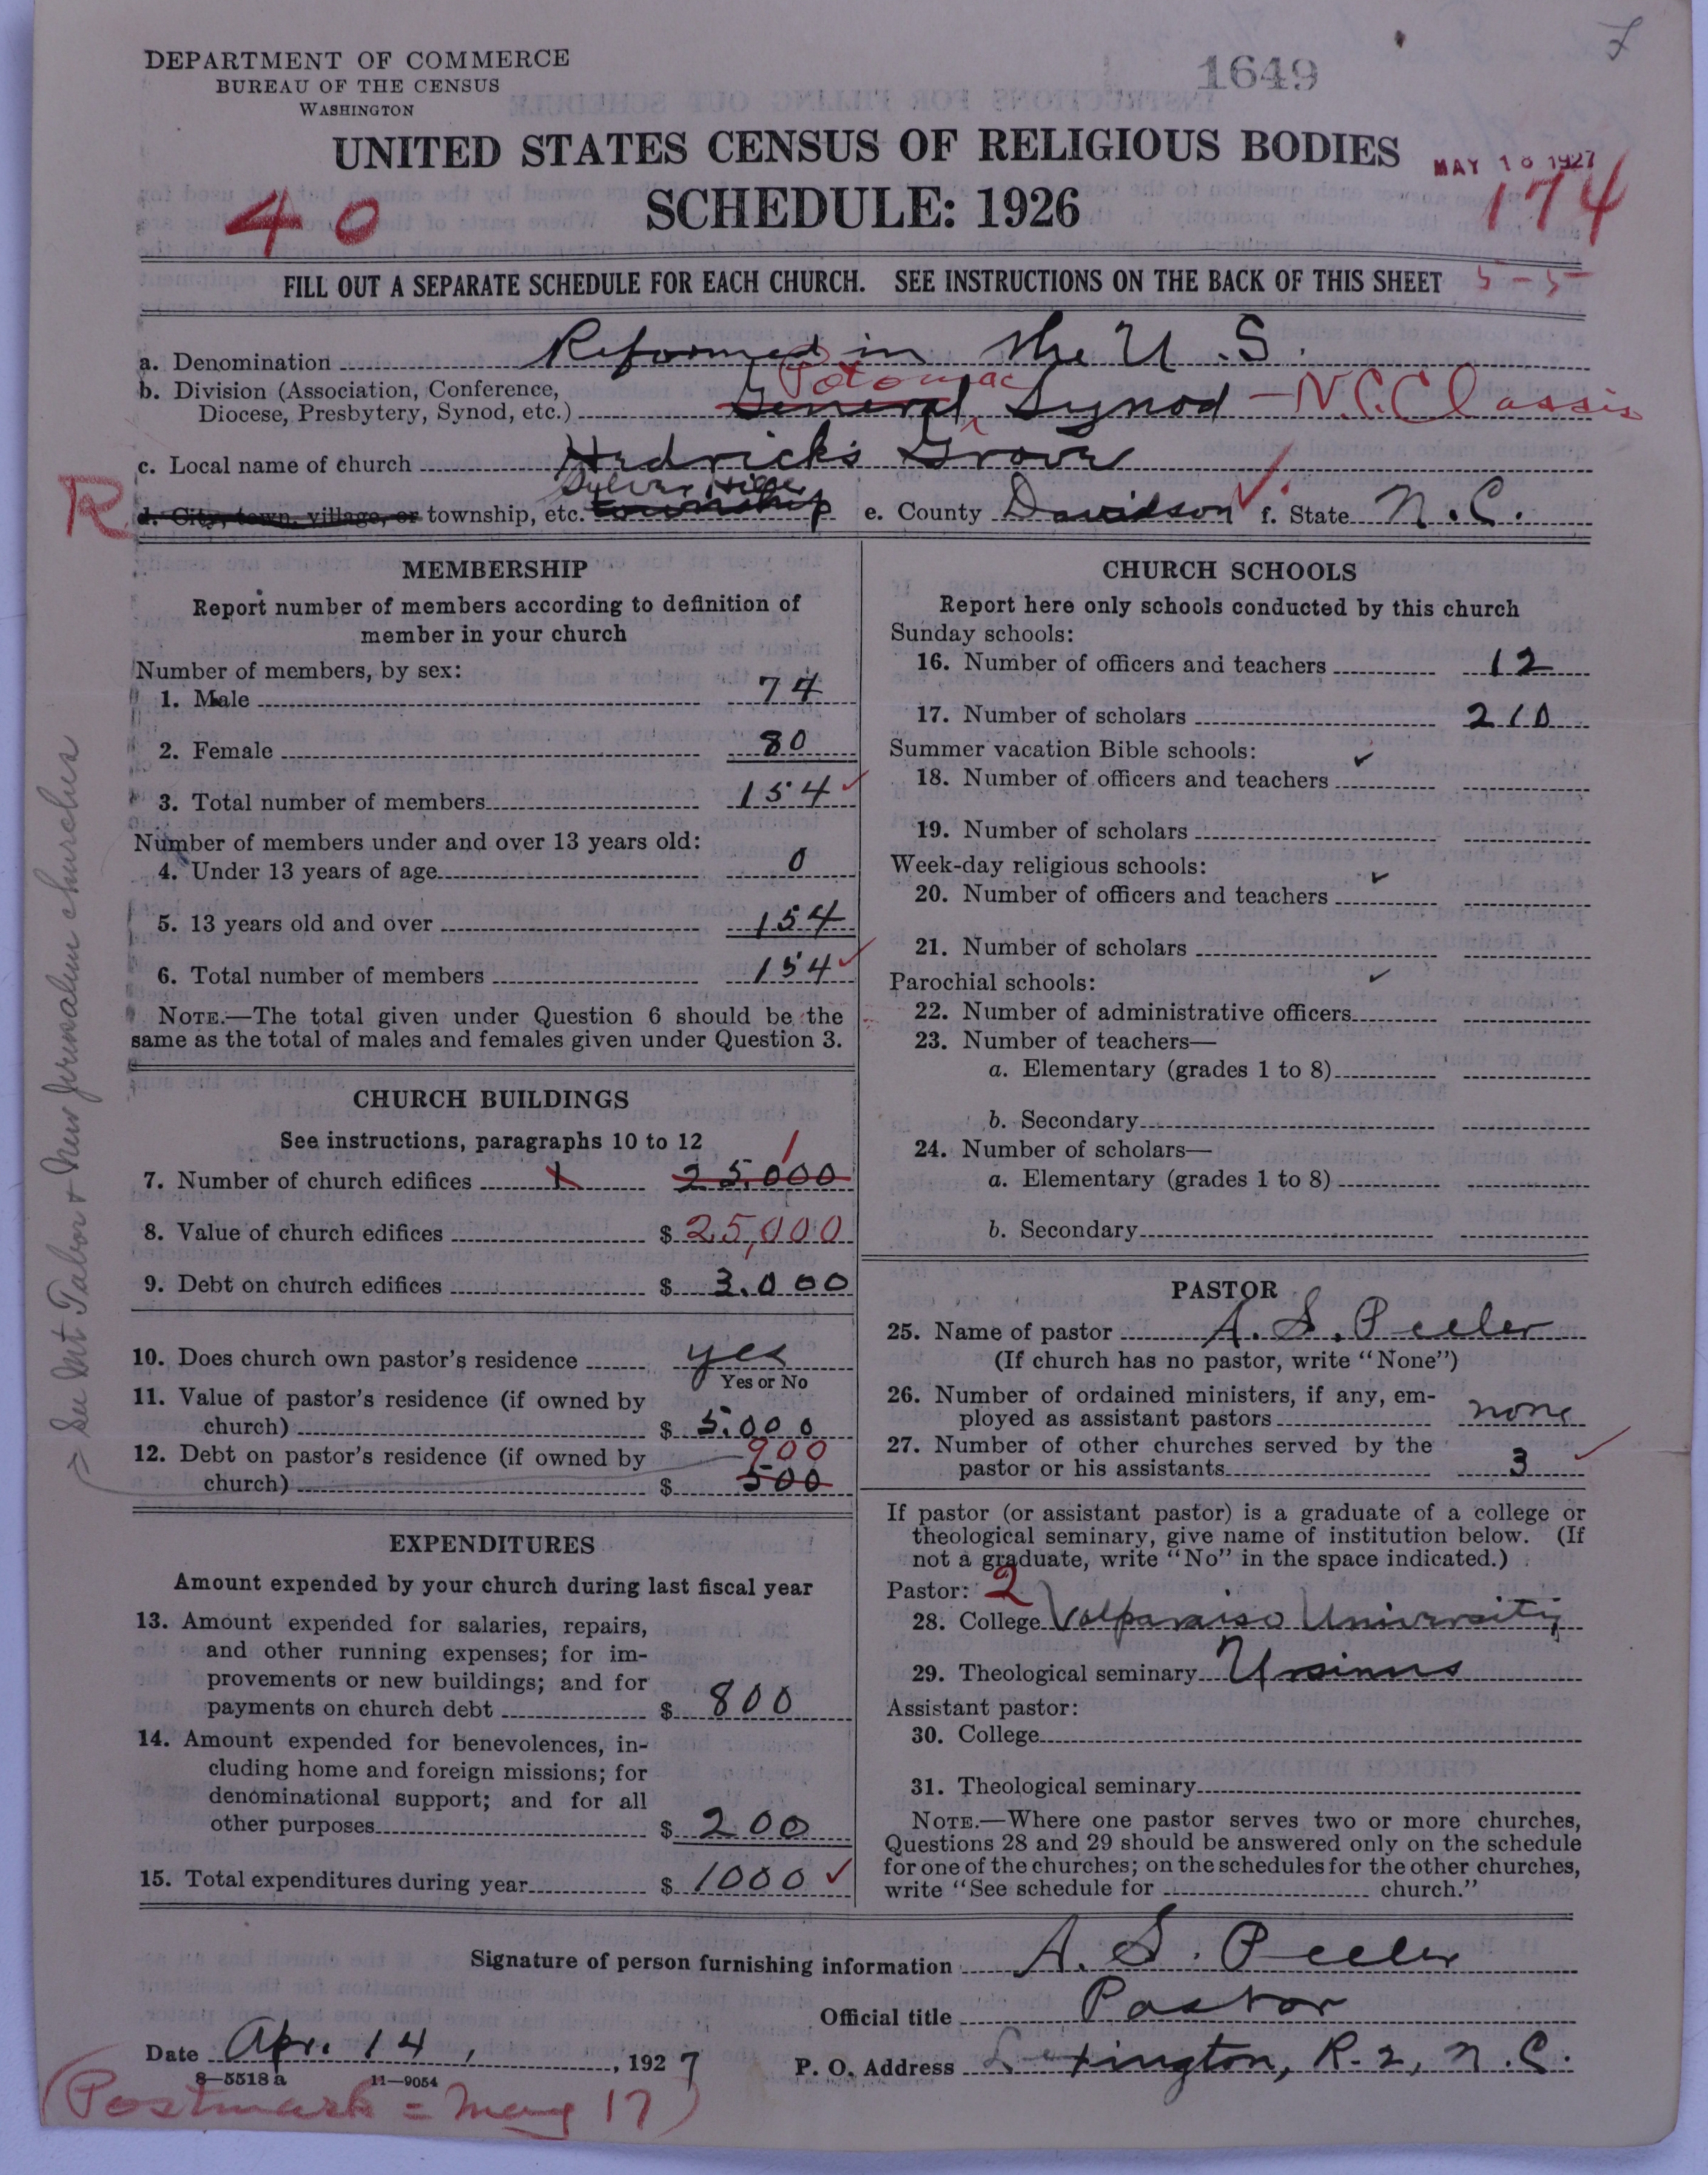 DEPARTMENT OF COMMERCE
BUREAU OF THE CENSUS
WASHINGTON
1649
UNITED STATES CENSUS OF RELIGIOUS BODIES
SCHEDULE: 1926
MAY 18 1927
40
174
FILL OUT A SEPARATE SCHEDULE FOR EACH CHURCH. SEE INSTRUCTIONS ON THE BACK OF THIS SHEET
5-5
a. Denomination Reformed in the U.S.
b. Division (Association, Conference, Diocese, Presbytery, Synod, etc.) General Potomac Synod - N.C. Classis
c. Local name of church Hedricks Grove
R
d. City, town, village, or township, etc. township Silver Hill e. County Davidson f. State N.C.
MEMBERSHIP
Report number of members according to definition of
member in your church
Number of members, by sex:
1. Male 74
2. Female 80
3. Total number of members 154
Number of members under and over 13 years old:
4. Under 13 years of age 0
5. 13 years old and over 154
6. Total number of members 154
NOTE.—The total given under Question 6 should be the
same as the total of males and females given under Question 3.
CHURCH BUILDINGS
See instructions, paragraphs 10 to 12
7. Number of church edifices 1 25.000 1
8. Value of church edifices $ 25,000
9. Debt on church edifices $ 3.000
10. Does church own pastor's residence yes
Yes or No
11. Value of pastor's residence (if owned by
church) $ 5.000
12. Debt on pastor's residence (if owned by
church) $ 500 900
> See Mt Tabor + New Jerusalem churches
EXPENDITURES
Amount expended by your church during last fiscal year
13. Amount expended for salaries, repairs,
and other running expenses; for im-
provements or new buildings; and for
payments on church debt $ 800
14. Amount expended for benevolences, in-
cluding home and foreign missions; for
denominational support; and for all
other purposes $ 200
15. Total expenditures during year $ 1000
CHURCH SCHOOLS
Report here only schools conducted by this church
Sunday schools:
16. Number of officers and teachers 12
17. Number of scholars 210
Summer vacation Bible schools:
18. Number of officers and teachers
19. Number of scholars
Week-day religious schools:
20. Number of officers and teachers
21. Number of scholars
Parochial schools:
22. Number of administrative officers
23. Number of teachers—
a. Elementary (grades 1 to 8)
b. Secondary
24. Number of scholars—
a. Elementary (grades 1 to 8)
b. Secondary
PASTOR
25. Name of pastor A. S. Peeler
(If church has no pastor, write "None")
26. Number of ordained ministers, if any, em-
ployed as assistant pastors none
27. Number of other churches served by the
pastor or his assistants 3
If pastor (or assistant pastor) is a graduate of a college or
theological seminary, give name of institution below. (If
not a graduate, write "No" in the space indicated.)
Pastor: 2
28. College Valparaiso University
29. Theological seminary Ursinus
Assistant pastor:
30. College
31. Theological seminary
NOTE.—Where one pastor serves two or more churches,
Questions 28 and 29 should be answered only on the schedule
for one of the churches; on the schedules for the other churches,
write "See schedule for church."
Signature of person furnishing information A. S. Peeler
Official title Pastor
Date Apr. 14, 1927 P. O. Address Lexington, R-2, N.C.
8—5518a 11—9054
(Postmark = May 17)